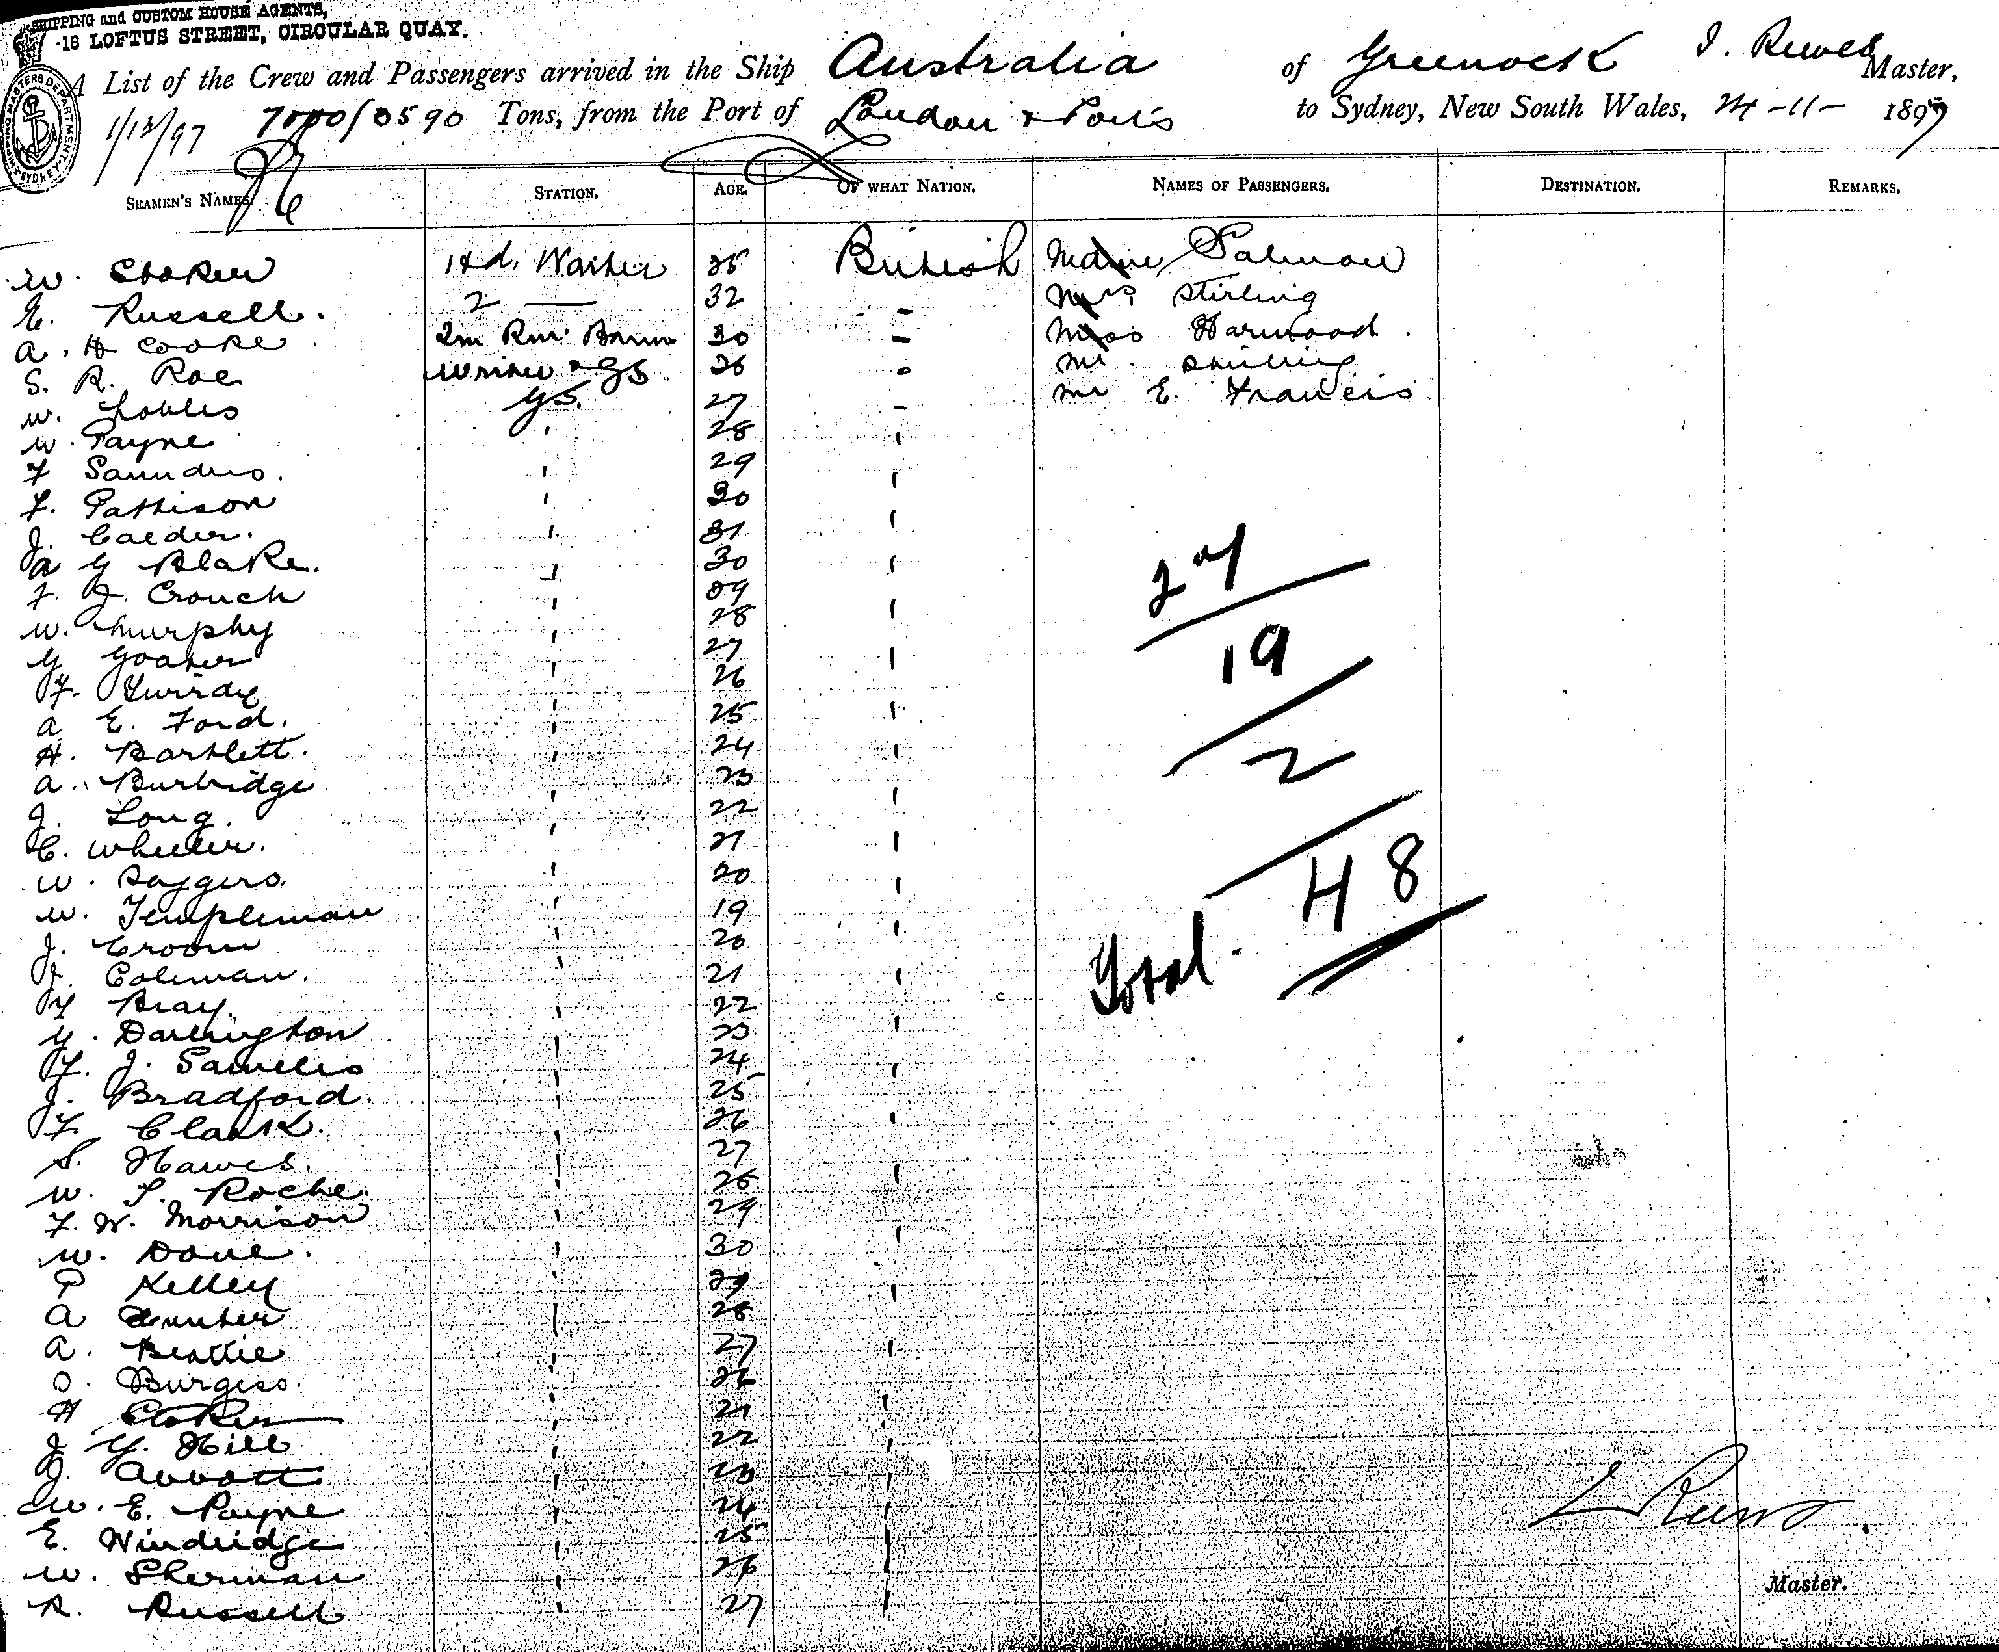 SHIPPING and CUSTOM HOUSE AGENTS,
-16 LOFTUS STREET, CIRCULAR QUAY.
A List of the Crew and Passengers arrived in the Ship Australia of Greenock I. Reeves Master,
1/12/97 Tons, from the Port of London & Ports to Sydney, New South Wales, 24-11- 1897
SEAMEN'S NAMES. STATION. AGE. OF WHAT NATION. NAMES OF PASSENGERS. DESTINATION. REMARKS.
W. 35 British Salmon
E. Russell. 2 — 32 Mrs Stirling
A. H Cooke 30 Miss Harwood.
S. R. Roe 26 Mr.
W. GS. 27 Mr E. Francis
W. Payne 28
F Saunders. 29
F. Pattison 30
J. Calder. 31
A G Blake. 30
F. J. Crouch 29
W. Murphy 28
G 27
F. 26
A E. Ford. 25
H. Bartlett. 24
A. Burbidge 23
J. Long. 22
C. Wheeler. 21
W. Saggers. 20
W. Templeman 19
J. Croom 20
J. Coleman. 21
F Bray. 22
G. Darlington 23
F. J. 24
J. Bradford. 25
F Clark. 26
S. Hawes. 27
W. S. Roche. 28
F. W. Morrison 29
W. Dove. 30
P Kelley 29
A 28
A. Beattie 27
O. Burgess. 26
H 21
J G. Hill 22
J. Abbott 23
W. E. Payne 24
E. Windridge 25
W. Sherman 26
R. Russell 27
27
19
2
Total. 48
Master.